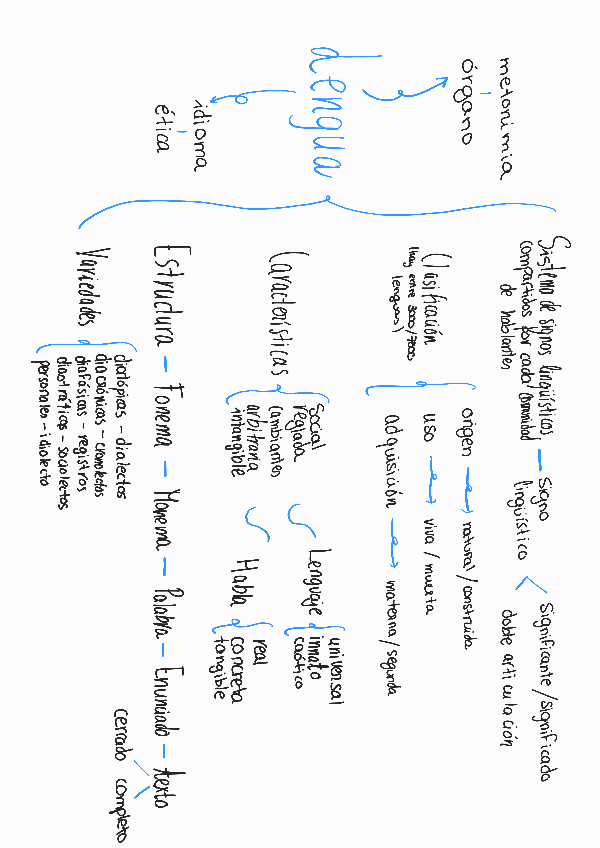 metonimia
órgano
Lengua
idioma
ética
Sistema de signos lingüísticos
compartidos por cada comunidad
de hablantes
Signo
lingüístico
Significante / significado
doble articulación
Clasificación
(hay entre 3000/7000
lenguas)
origen → natural / construida
uso → viva / muerta
adquisición → materna / segunda
Características
social
reglada
cambiantes
arbitraria
intangible
Lenguaje
universal
innato
caótico
Habla
real
concreta
tangible
Estructura — Fonema — Monema — Palabra — Enunciado — texto
cerrado completo
Variedades
diatópicas - dialectos
diacrónicas - cronolectos
diafásicas - registros
diastráticas - sociolectos
personales - idiolecto